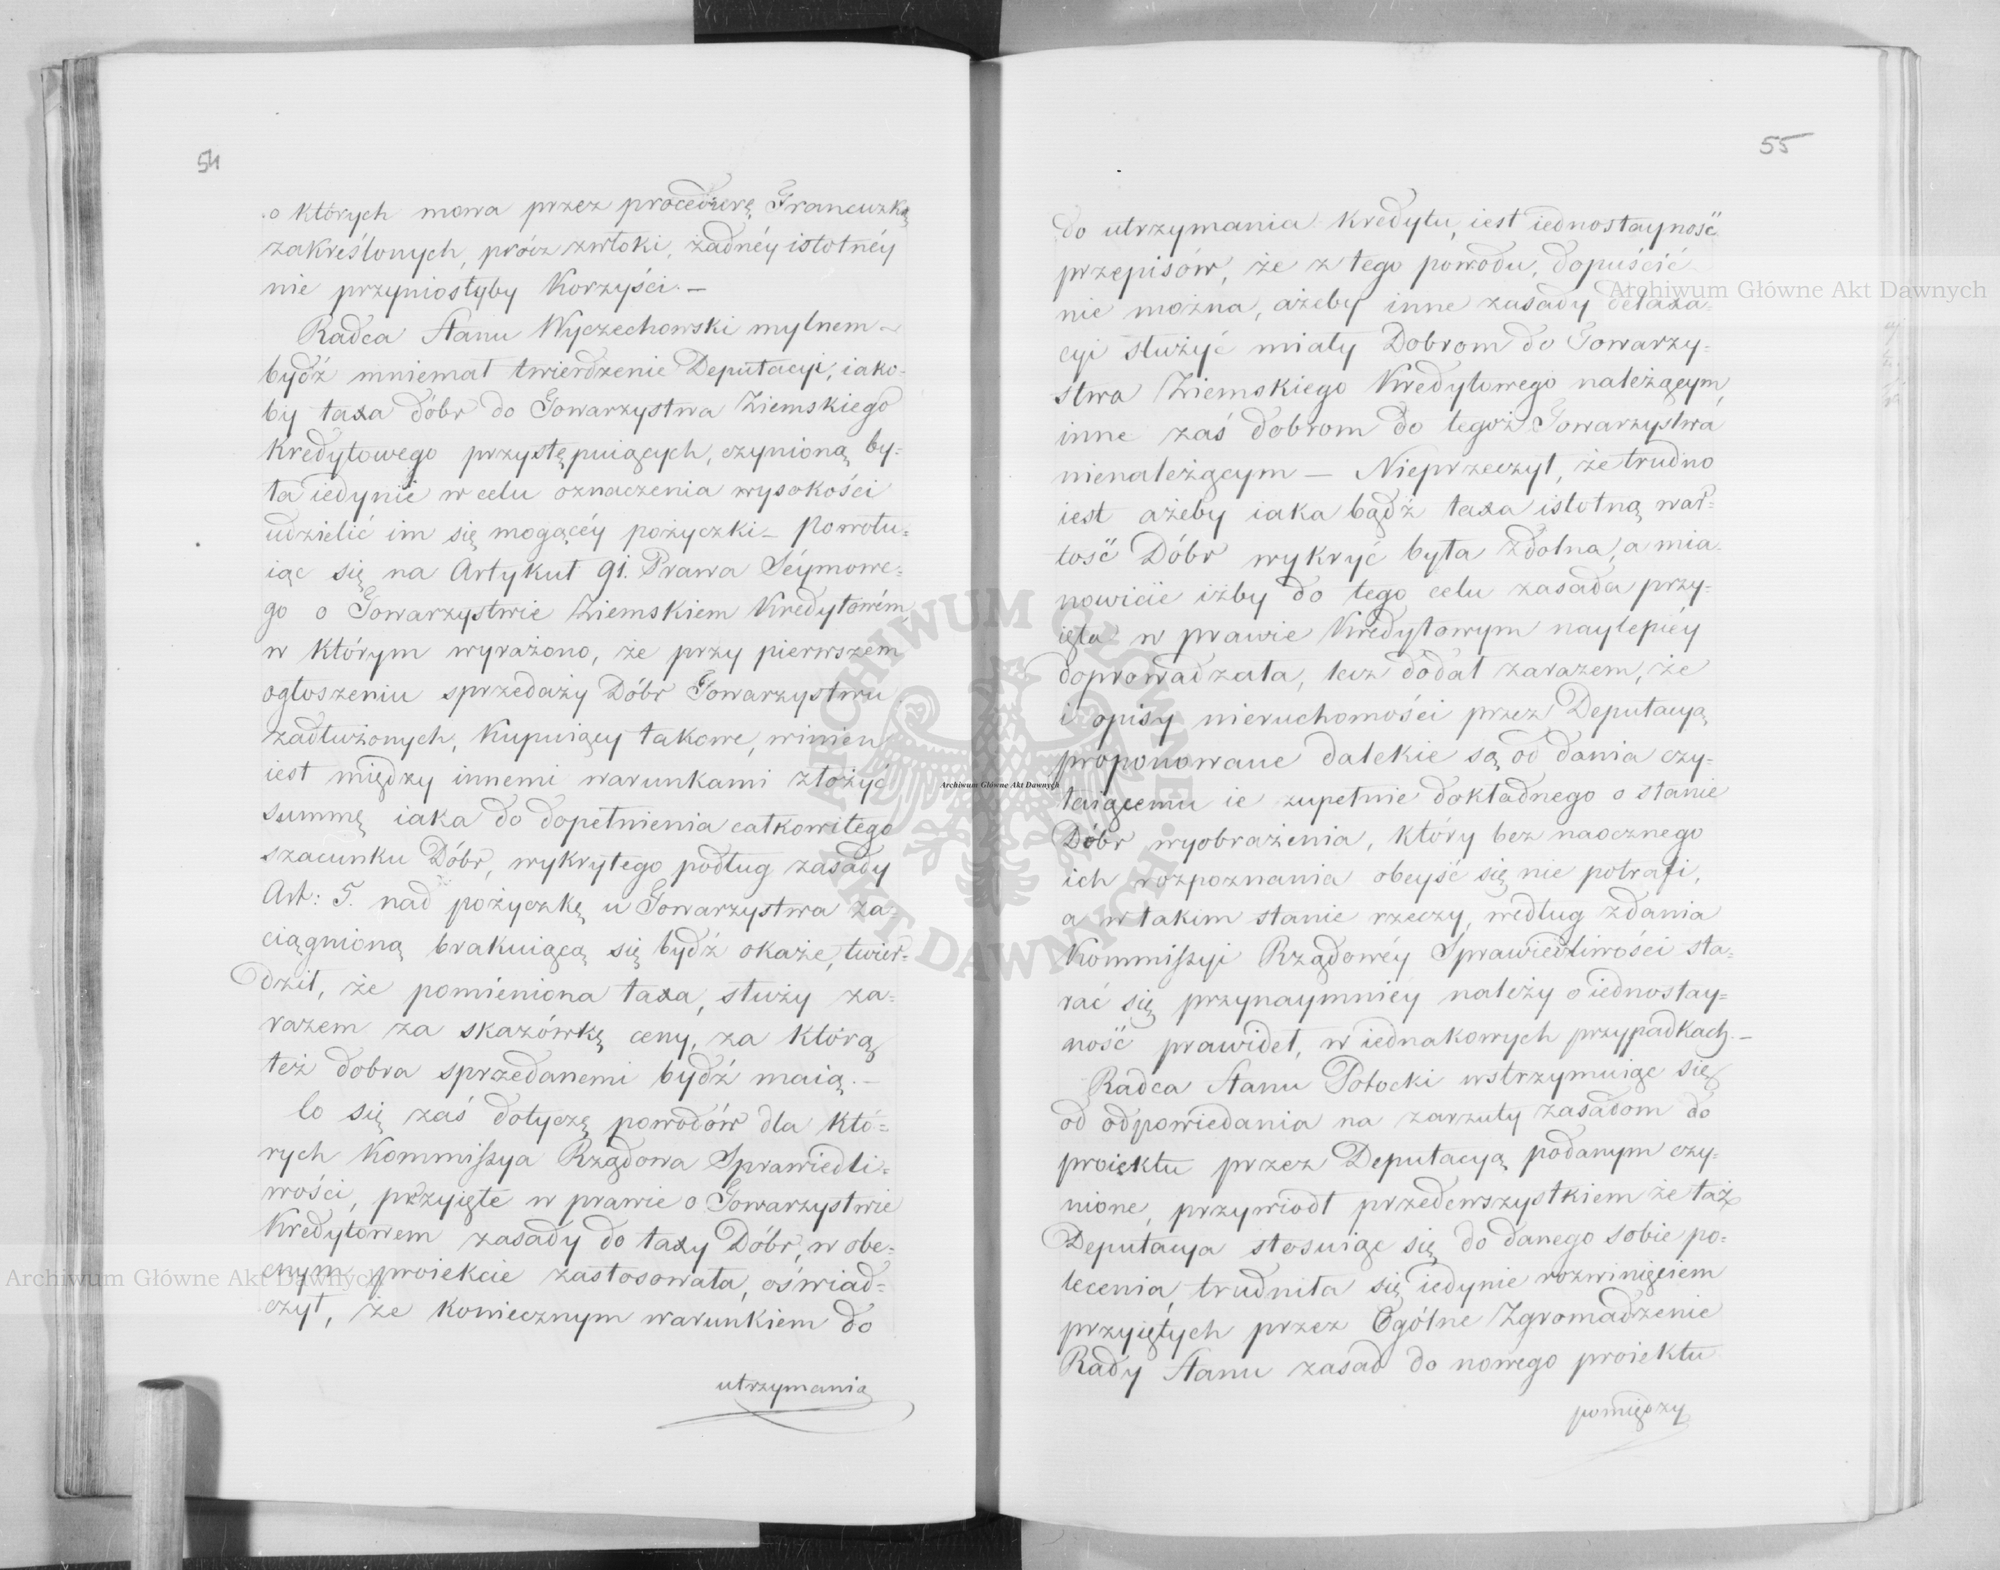 54
o których mowa przez procedurę Francuzką
zakreślonych, prócz zwłoki, żadnéy istotnéy
nie przyniosłyby korzyści. —
Radca Stanu Wyczechowski mylnem
bydź mniemał twierdzenie Deputacyi, iako-
by taxa dóbr do Towarzystwa Ziemskiego
Kredytowego przystępuiących, czynioną by-
ła iedynie w celu oznaczenia wysokości
udzielić im się mogącéy pożyczki — Powołu-
iąc się na Artykuł 91. Prawa Séymowe-
go o Towarzystwie Ziemskiem Kredytowém
w którym wyrażono, że przy pierwszem
ogłoszeniu sprzedaży Dóbr Towarzystwu
zadłużonych, Kupuiący takowe, winien
iest między innemi warunkami złożyć
summę iaka do dopełnienia całkowitego
szacunku Dóbr, wykrytego podług zasady
Art: 5. nad pożyczkę u Towarzystwa za-
ciągnioną brakuiącą się bydź okaże, twier-
dził, że pomieniona taxa, służy za-
razem za skazówkę ceny, za którą
też dobra sprzedanemi bydź maią. —
Co się zaś dotyczę powodów dla któ-
rych Kommissya Rządowa Sprawiedli-
wości, przyięte w prawie o Towarzystwie
Kredytowem zasady do taxy Dóbr, w obe-
cnym proiekcie zastosowała, oświad-
czył, że koniecznym warunkiem do
utrzymania
55
do utrzymania kredytu, iest iednostayność
przepisów, że z tego powodu, dopuścić
nie można, ażeby inne zasady detaxa-
cyi służyć miały Dobrom do Towarzy-
stwa Ziemskiego Kredytowego należącym,
inne zaś dobrom do tegoż Towarzystwa
nienależącym — Nieprzeczył, że trudno
iest ażeby iaka bądź taxa istotną war-
tość Dóbr wykryć była zdolna, a mia-
nowicie iżby do tego celu zasada przy-
ięta w prawie Kredytowym naylepiéy
doprowadzała, lecz dodał zarazem, że
i opisy nieruchomości przez Deputacyą
proponowane dalekie są od dania czy-
taiącemu ie zupełnie dokładnego o stanie
Dóbr wyobrażenia, który bez naocznego
ich rozpoznania obeyść się nie potrafi,
a w takim stanie rzeczy, według zdania
Kommissyi Rządowéy Sprawiedliwości sta-
rać się przynaymniéy należy o iednostay-
ność prawideł, w iednakowych przypadkach. —
Radca Stanu Potocki wstrzymuiąc się
od odpowiedania na zarzuty zasadom do
proiektu przez Deputacyą podanym czy-
nione, przywiodł przedewszystkiem że taż
Deputacya stosuiąc się do danego sobie po-
lecenia, trudniła się iedynie rozwinięciem
przyiętych przez Ogólne Zgromadzenie
Rady Stanu zasad do nowego proiektu
pomiędzy
Archiwum Główne Akt Dawnych
Archiwum Główne Akt Dawnych
Archiwum Główne Akt Dawnych
ARCHIWUM GŁÓWNE AKT DAWNYCH